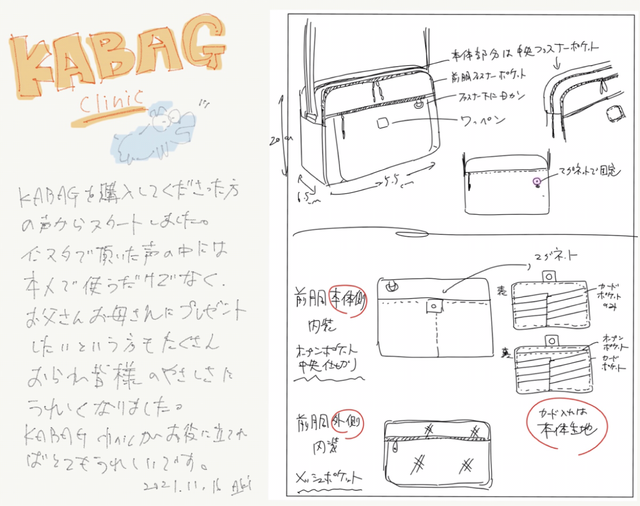 KABAG
clinic
KABAGを購入してくださった方
の声からスタートしました。
インスタで頂いた声の中には
本人で使うだけでなく、
お父さんお母さんにプレゼント
したいという方もたくさん
おられ皆様のやさしさに
うれしくなりました。
KABAG clinicがお役に立てれ
ばとてもうれしいです。
2021.11.16 Aki
本体部分は中央ファスナーポケット
前胴ファスナーポケット
ファスナー下にDカン
ワッペン
20cm
6.5cm
マグネットで固定
マグネット
前胴本体側
内装
オープンポケット
中央仕切り
表
カード
ポケット
裏
オープン
ポケット
カード
ポケット
カード入れは
本体生地
前胴外側
内装
メッシュポケット